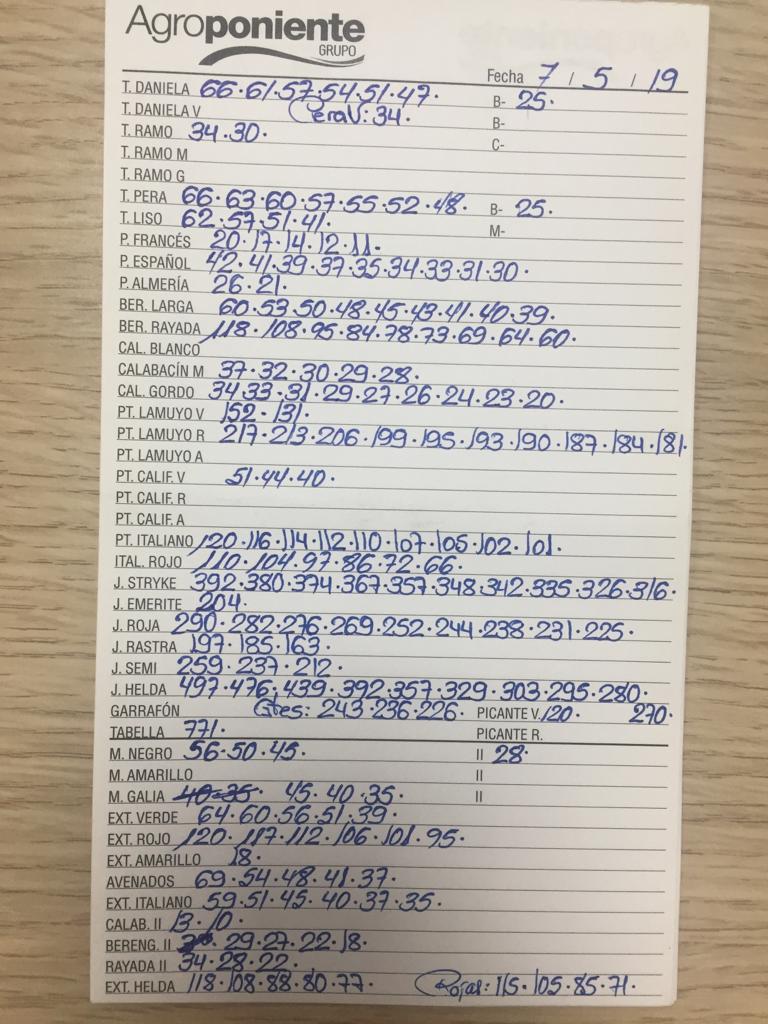 Agroponiente
GRUPO
Fecha 7 / 5 / 19
T. DANIELA 66·61·57·54·51·47· B- 25·
T. DANIELA V (PeraV: 34· B-
T. RAMO 34·30· C-
T. RAMO M
T. RAMO G
T. PERA 66·63·60·57·55·52·48· B- 25·
T. LISO 62·57·51·41· M-
P. FRANCÉS 20·17·14·12·11·
P. ESPAÑOL 42·41·39·37·35·34·33·31·30·
P. ALMERÍA 26·21·
BER. LARGA 60·53·50·48·45·43·41·40·39·
BER. RAYADA 118·108·95·84·78·73·69·64·60·
CAL. BLANCO
CALABACÍN M 37·32·30·29·28·
CAL. GORDO 34·33·31·29·27·26·24·23·20·
PT. LAMUYO V 152·131·
PT. LAMUYO R 217·213·206·199·195·193·190·187·184·181·
PT. LAMUYO A
PT. CALIF. V 51·44·40·
PT. CALIF. R
PT. CALIF. A
PT. ITALIANO 120·116·114·112·110·107·105·102·101·
ITAL. ROJO 110·104·97·86·72·66·
J. STRYKE 392·380·374·367·357·348·342·335·326·316·
J. EMERITE 204·
J. ROJA 290·282·276·269·252·244·238·231·225·
J. RASTRA 197·185·163·
J. SEMI 259·237·212·
J. HELDA 497·476·439·392·357·329·303·295·280·
GARRAFÓN Gtes: 243·236·226· PICANTE V. 120· 270·
TABELLA 771· PICANTE R.
M. NEGRO 56·50·45· II 28·
M. AMARILLO II
M. GALIA 40·35· 45·40·35· II
EXT. VERDE 64·60·56·51·39·
EXT. ROJO 120·117·112·106·101·95·
EXT. AMARILLO 18·
AVENADOS 69·54·48·41·37·
EXT. ITALIANO 59·51·45·40·37·35·
CALAB. II 13·10·
BERENG. II 29·27·22·18·
RAYADA II 34·28·22·
EXT. HELDA 118·108·88·80·77· Rojas: 115·105·85·71·